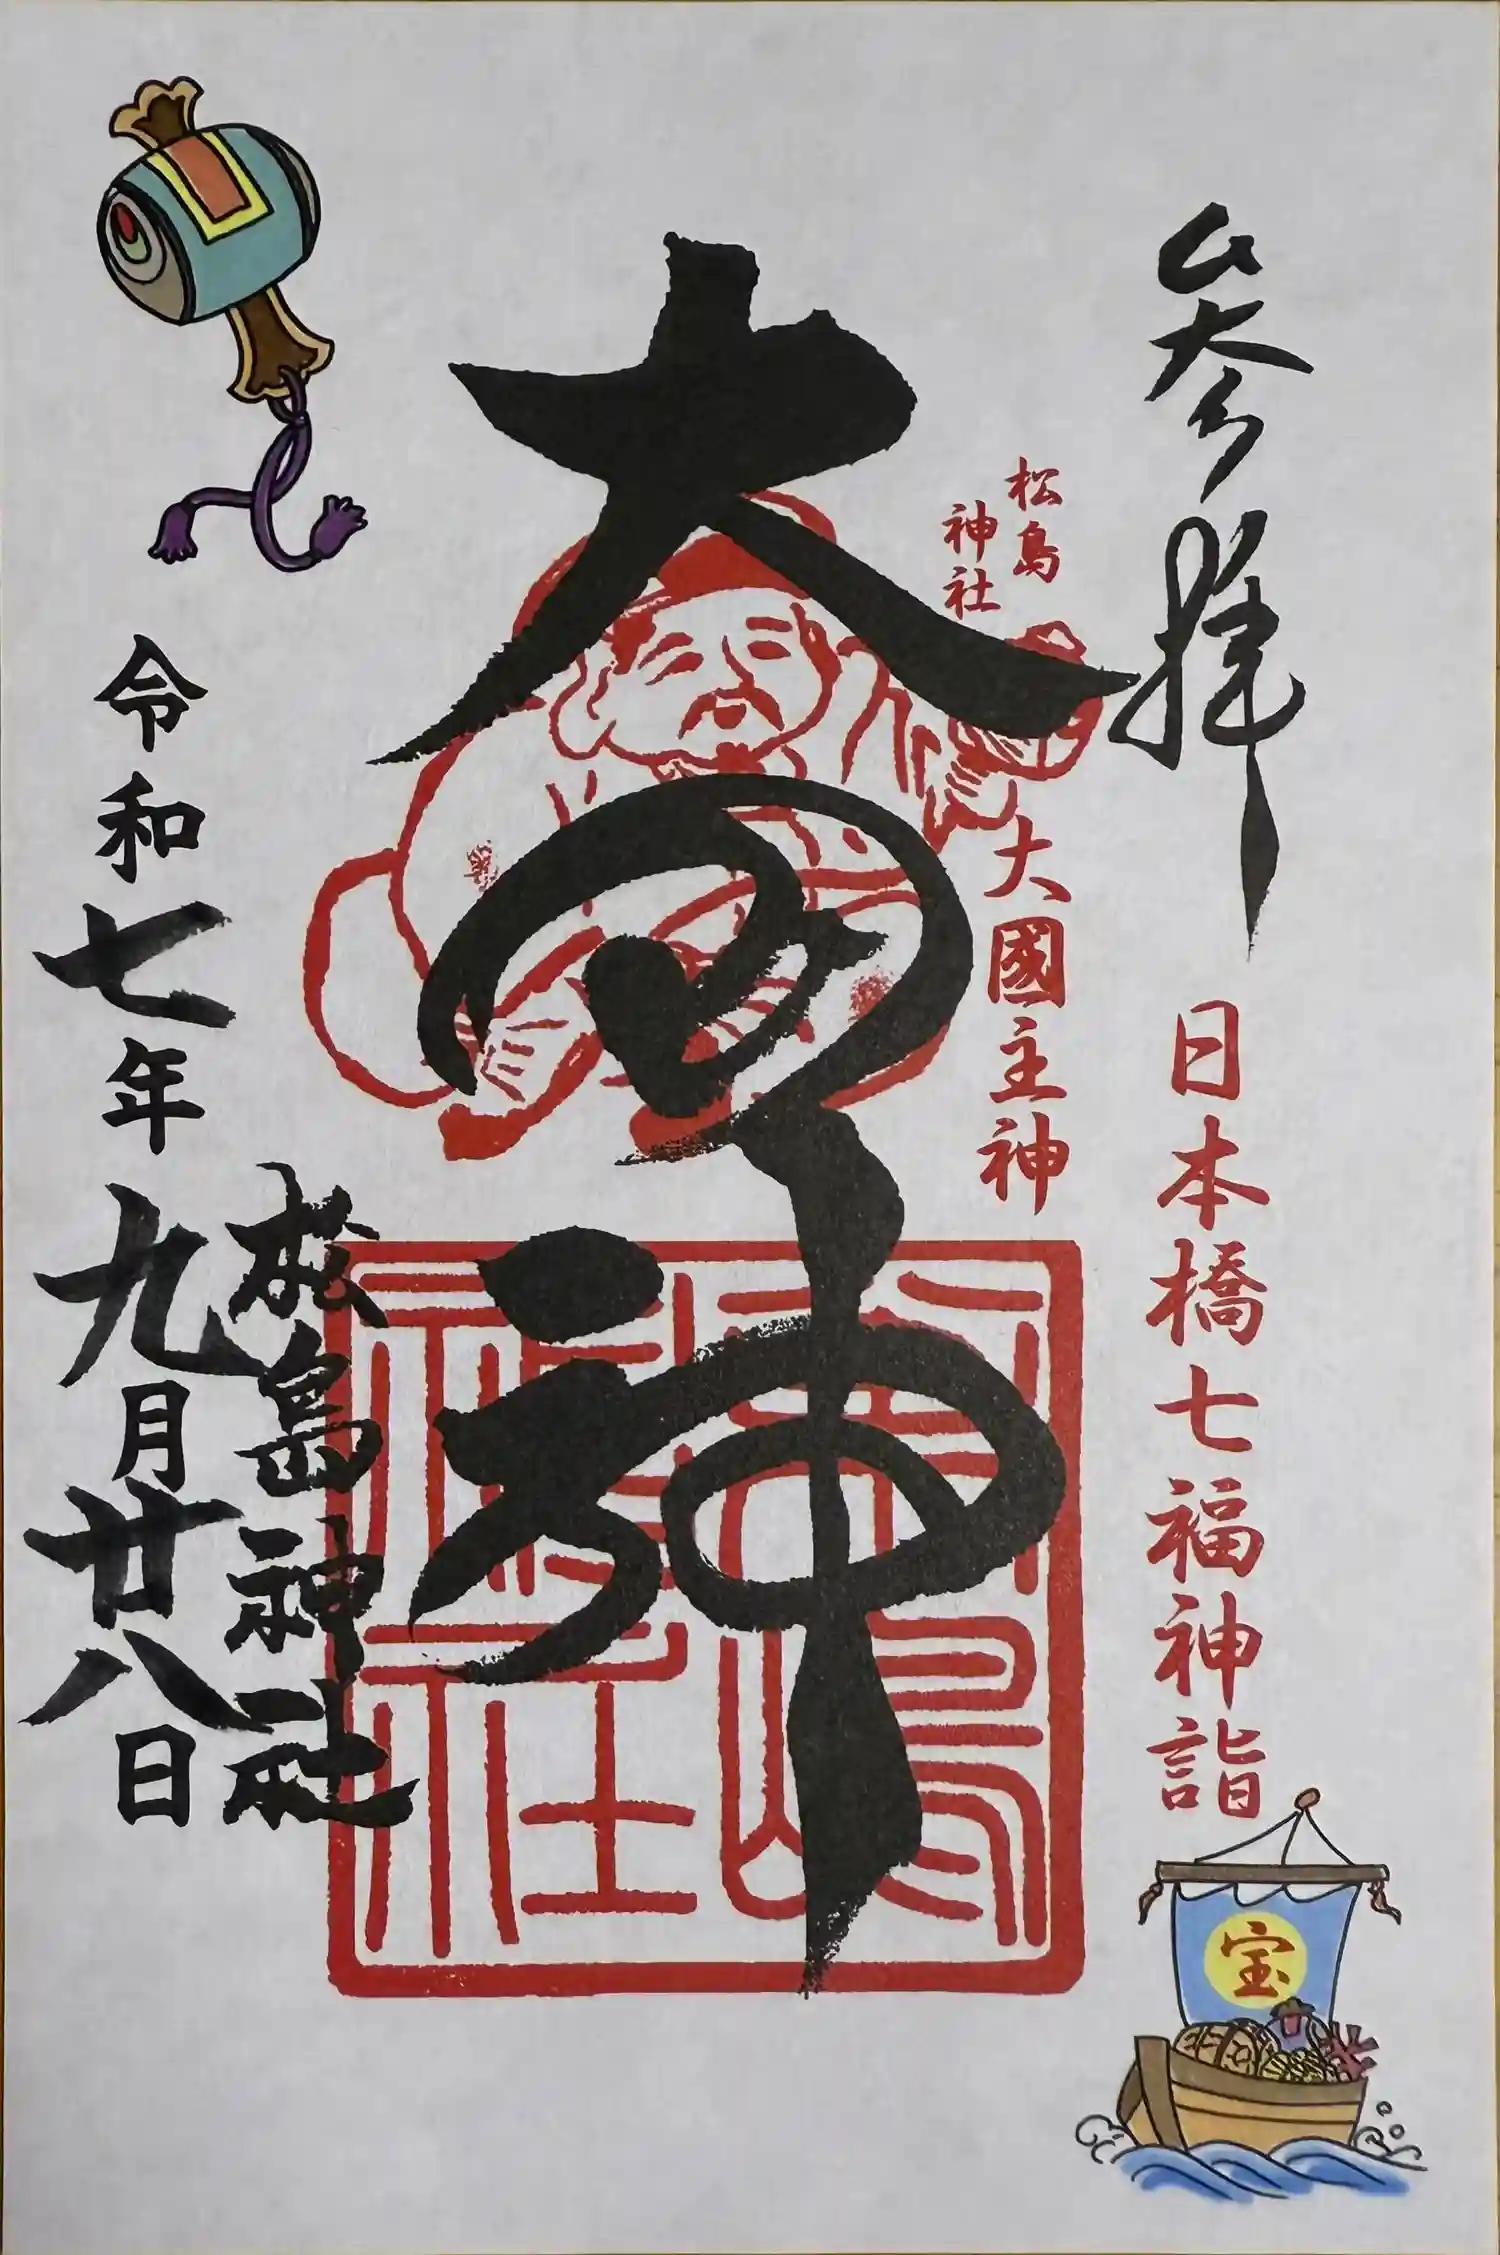 参拝
日本橋七福神詣
宝
松島
神社
大國主神
大国神
松嶋
神社
松島神社
令和七年九月廿八日